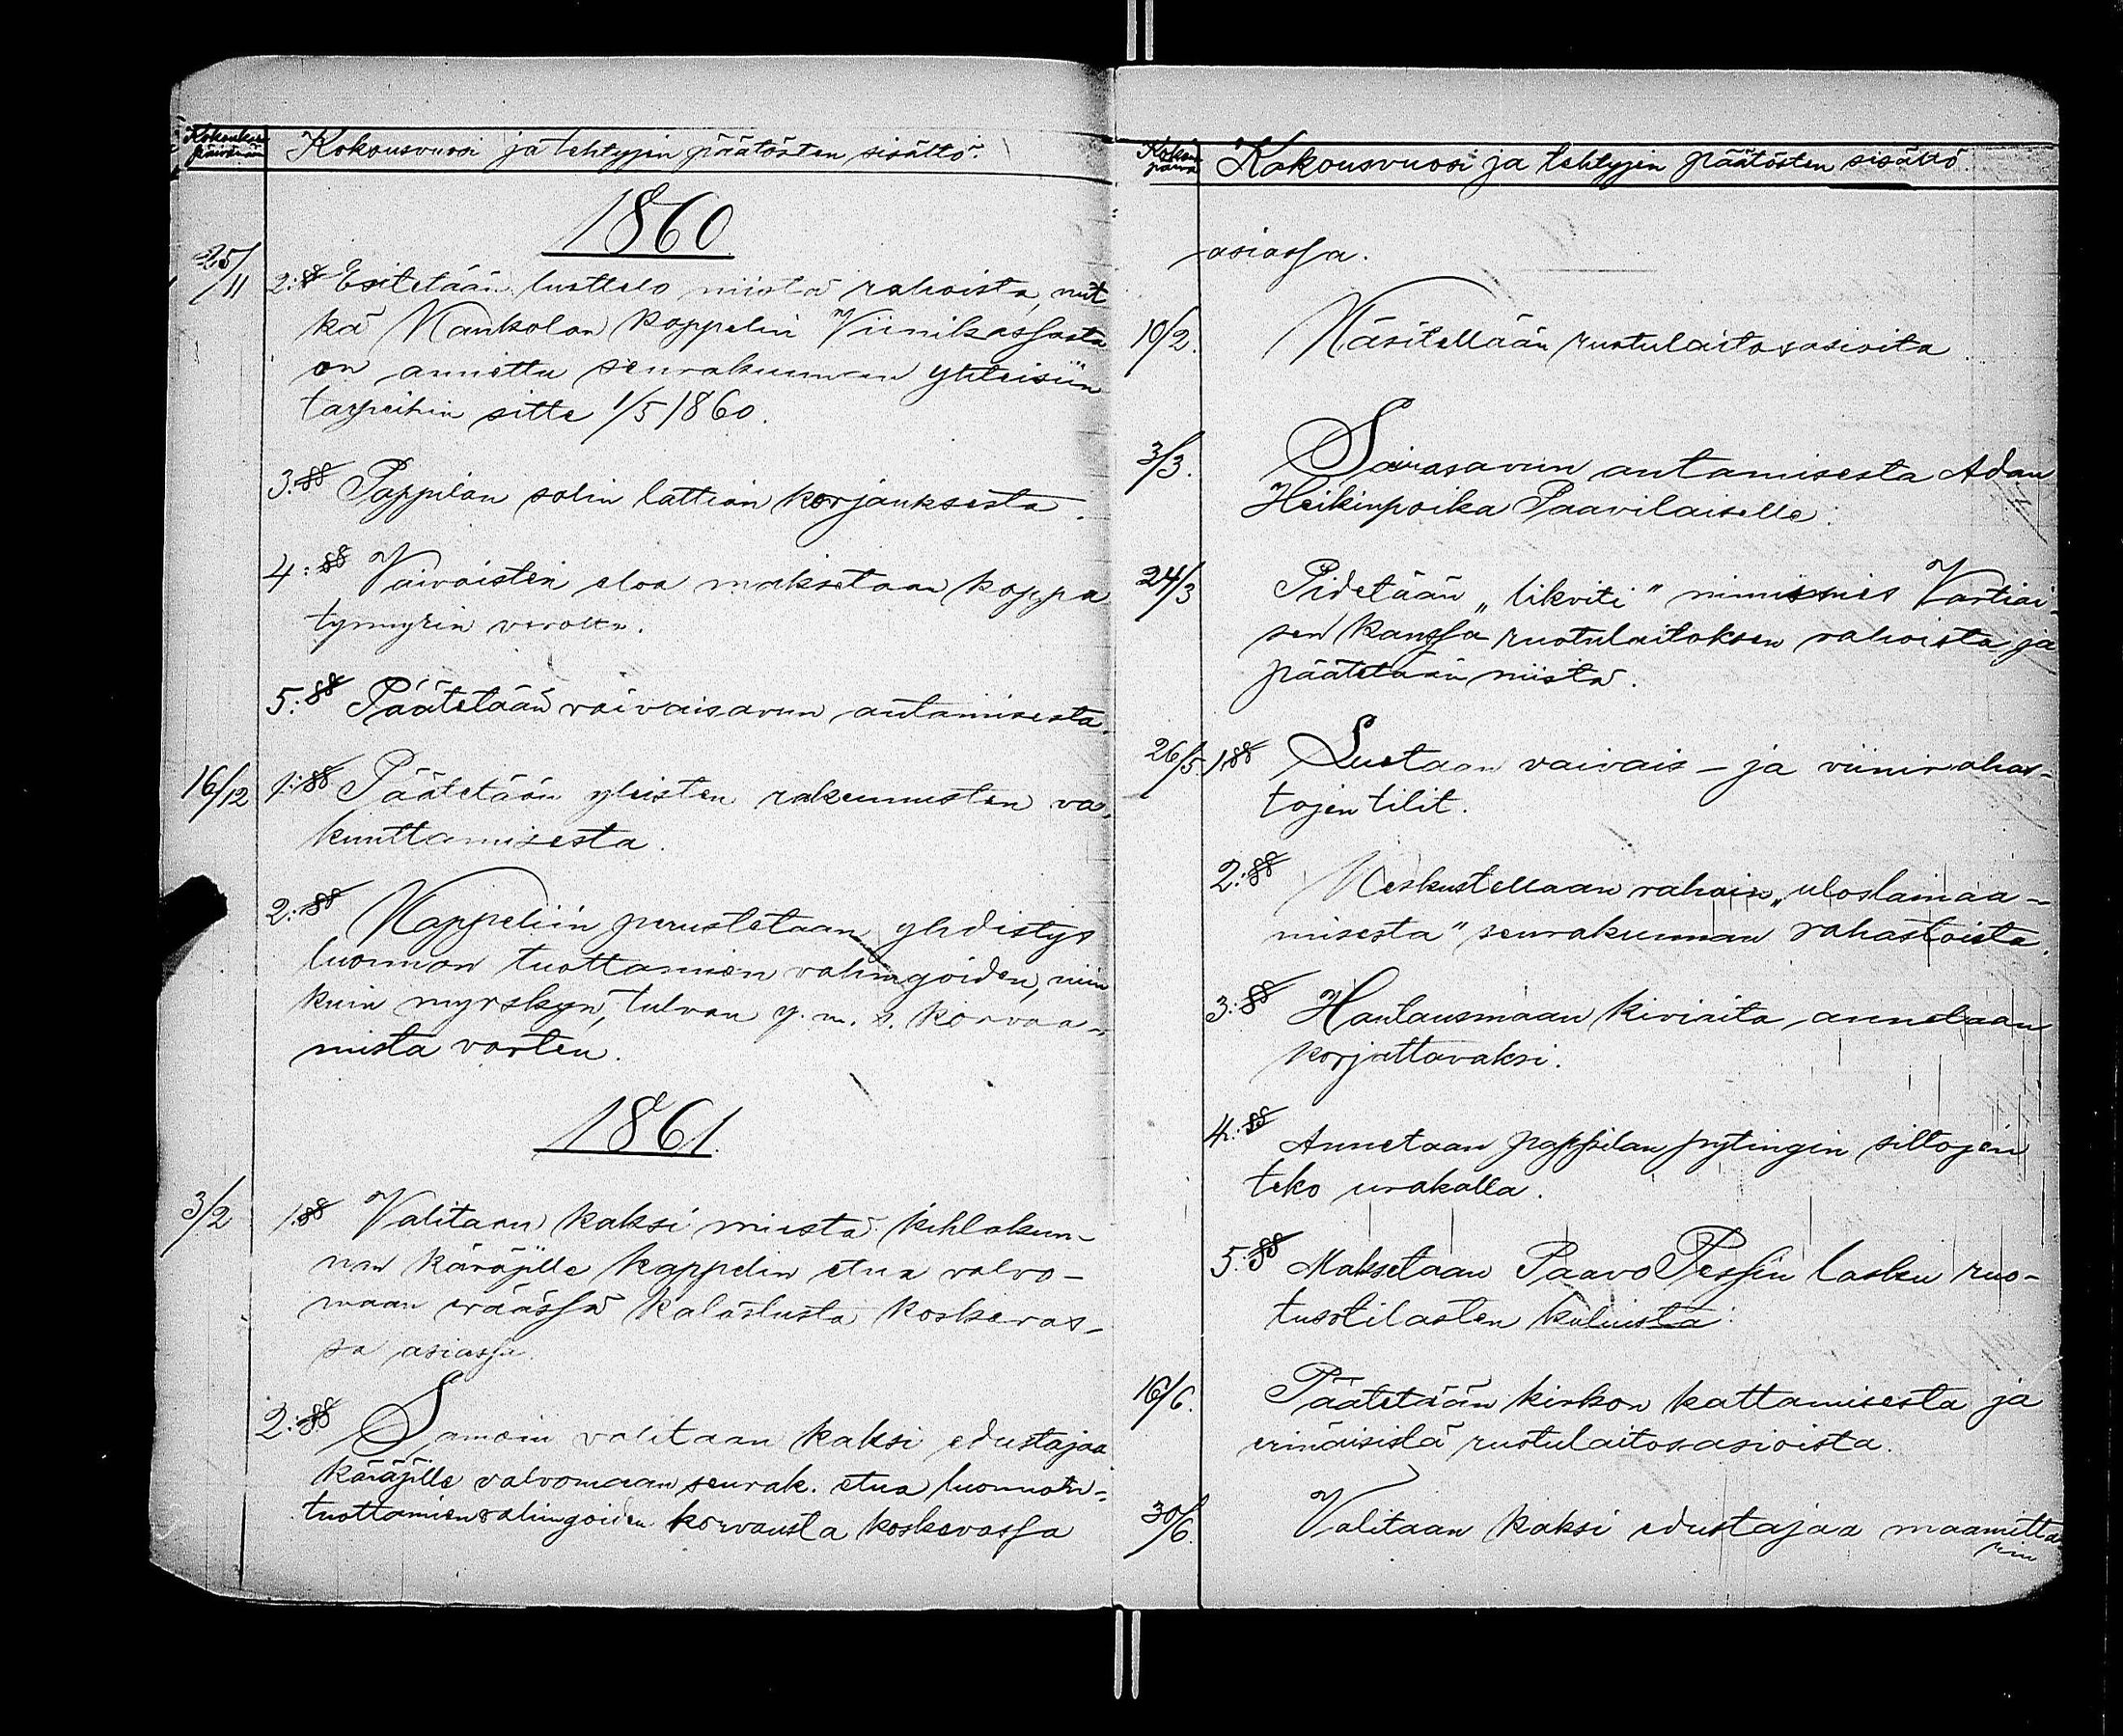 Kokouksen päivämä Kokousvuosi ja tehtyjen päätösten sisältö.
1860.
25/11 2:§§ Esitetään luettelo niistä rahoista, mit
kä Kaukolan kappelin Viinikassasta
on annettu seurakunnan yhteisiin
tarpeihin sitte 1/5 1860.
3:§§ Pappilan salin lattian korjauksesta.
4:§§ Vaivaisten eloa maksetaan kappa
tynnyrin verolta.
5:§§ Päätetään vaivaisavun antamisesta.
16/12 1:§§ Päätetään yleisten rakennusten va-
kuuttamisesta.
2:§§ Kappeliin perustetaan yhdistys
luonnon tuottamien vahingoiden, niin
kuin myrskyn, tulvan y. m. s. korvaa-
mista varten.
1861.
3/2 1:§§ Valitaan kaksi miestä kihlakun-
nan käräjille kappelin etua valvo-
maan eräässä kalastusta koskevas-
sa asiassa.
2:§§ Samoin valitaan kaksi edustajaa
käräjille valvomaan seurak. etua luonnon-
tuottamien vahingoiden korvausta koskevassa
Kokou päivä Kokousvuosi ja tehtyjen päätösten sisältö.
asiassa.
10/2. Käsitellään ruotulaitosasioita
3/3. Sairasavun antamisesta Adam
Heikinpoika Paavilaiselle.
24/3 Pidetään „likviti" nimismies Vartiai-
sen kanssa ruotulaitoksen rahoista ja
päätetään niistä.
26/5. 1:§§ Luetaan vaivais- ja viinirahas-
tojen tilit.
2:§§ Keskustellaan rahain „uloslainaa-
misesta" seurakunnan rahastoista.
3:§§ Hautausmaan kiviaita annetaan
korjattavaksi.
4:§§ Annetaan pappilan pytingin siltojen
teko urakalla.
5:§§ Maksetaan Paavo Pessin lasku ruo-
tusotilasten kuluista.
16/6. Päätetään kirkon kattamisesta ja
erinäisistä ruotulaitosasioista.
30/6. Valitaan kaksi edustajaa maamitta